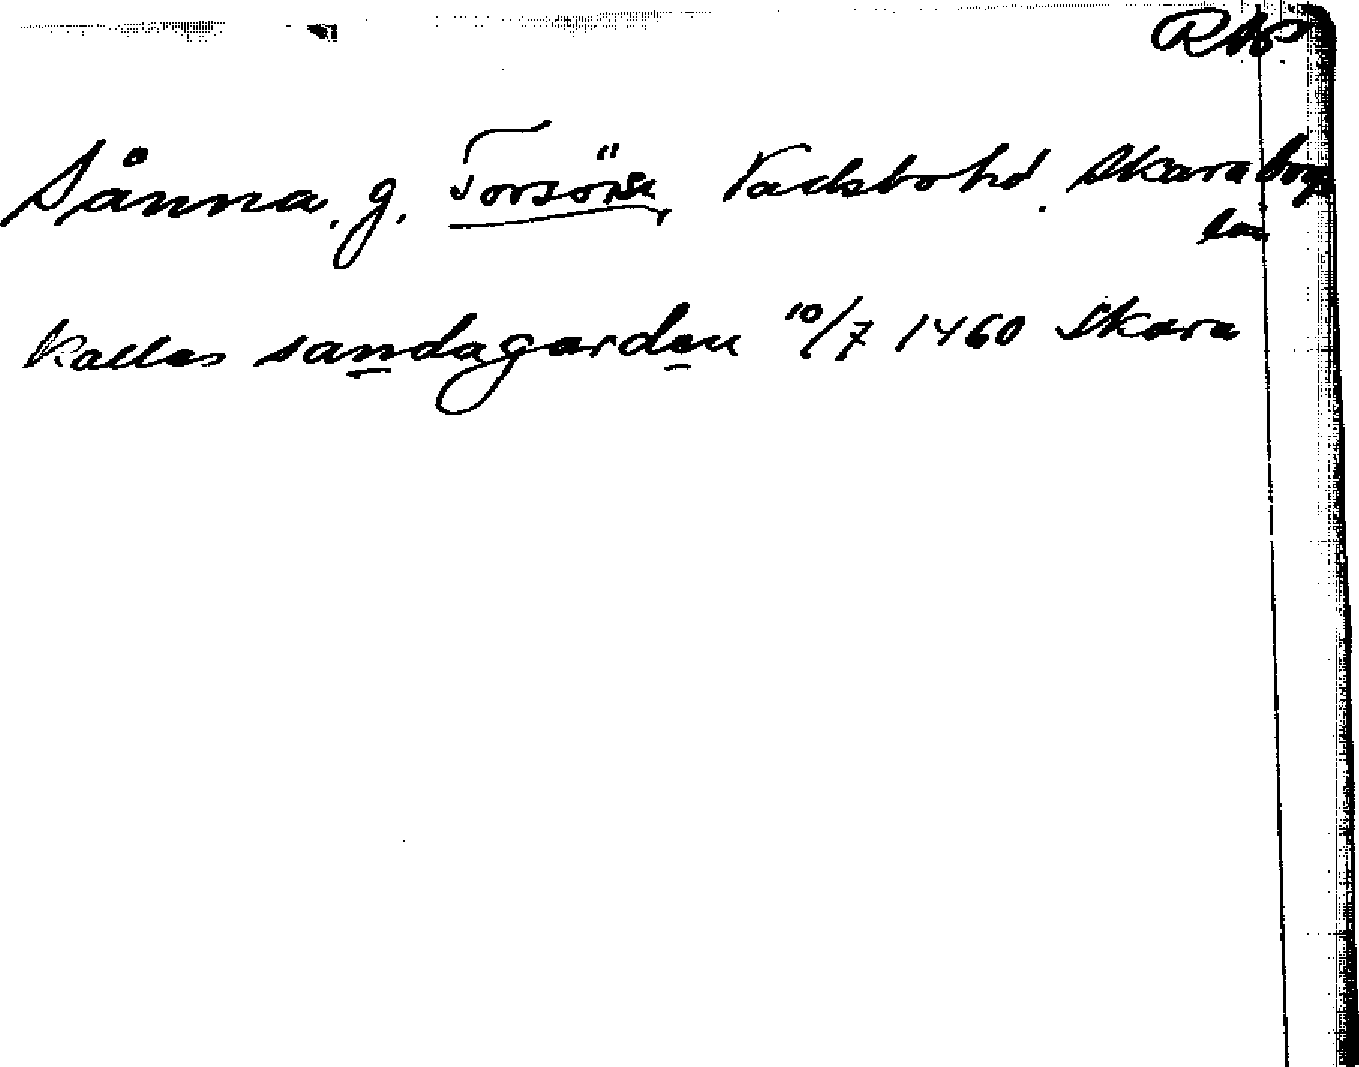 RAP
Sånna, g. Torsö sn, Vadsbo hd. Skaraborgs
län
kallas sandagarden 10/7 1460 Skara